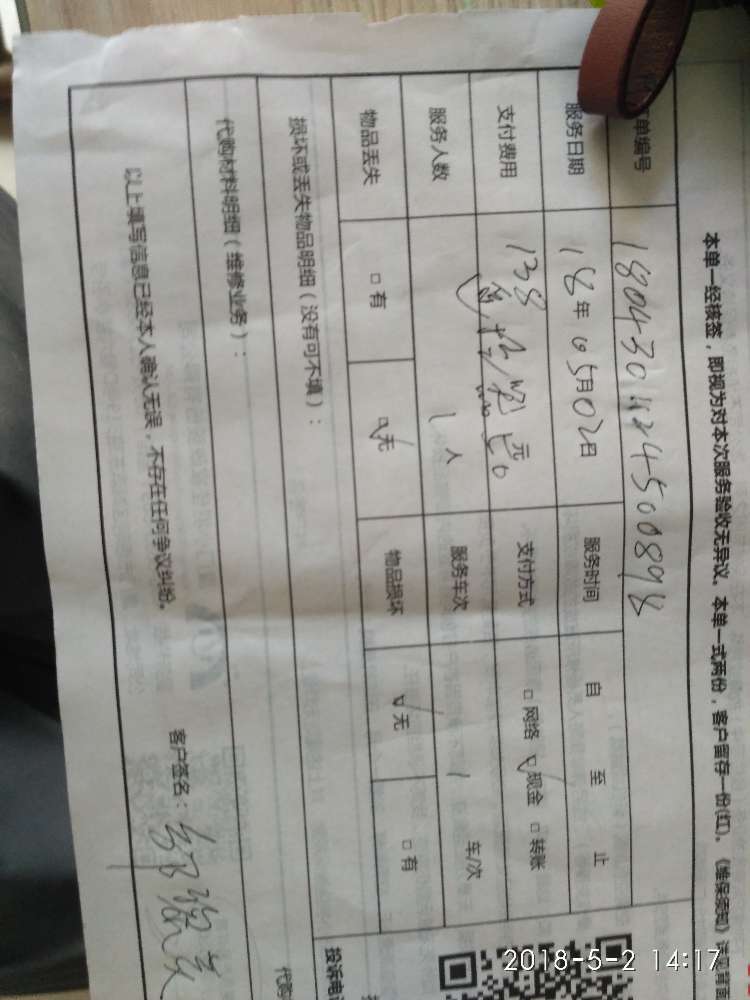 本单一经核签，即视为对本次服务验收无异议。本单一式两份，客户留存一份(红)。《维保须知》详见背面
单编号 1804301124500898
服务日期 18年05月02日 服务时间 自 至 止
支付费用 138 元 支付方式 □网络 ☑现金 □转账
服务人数 1人 服务车次 1 车/次
物品丢失 □有 ☑无 物品损坏 ☑无 □有
损坏或丢失物品明细（没有可不填）：
代购材料明细（维修业务）：
以上填写信息已经本人确认无误，不存在任何争议纠纷。
客户签名：
投诉电
代购
2018-5-2 14:17